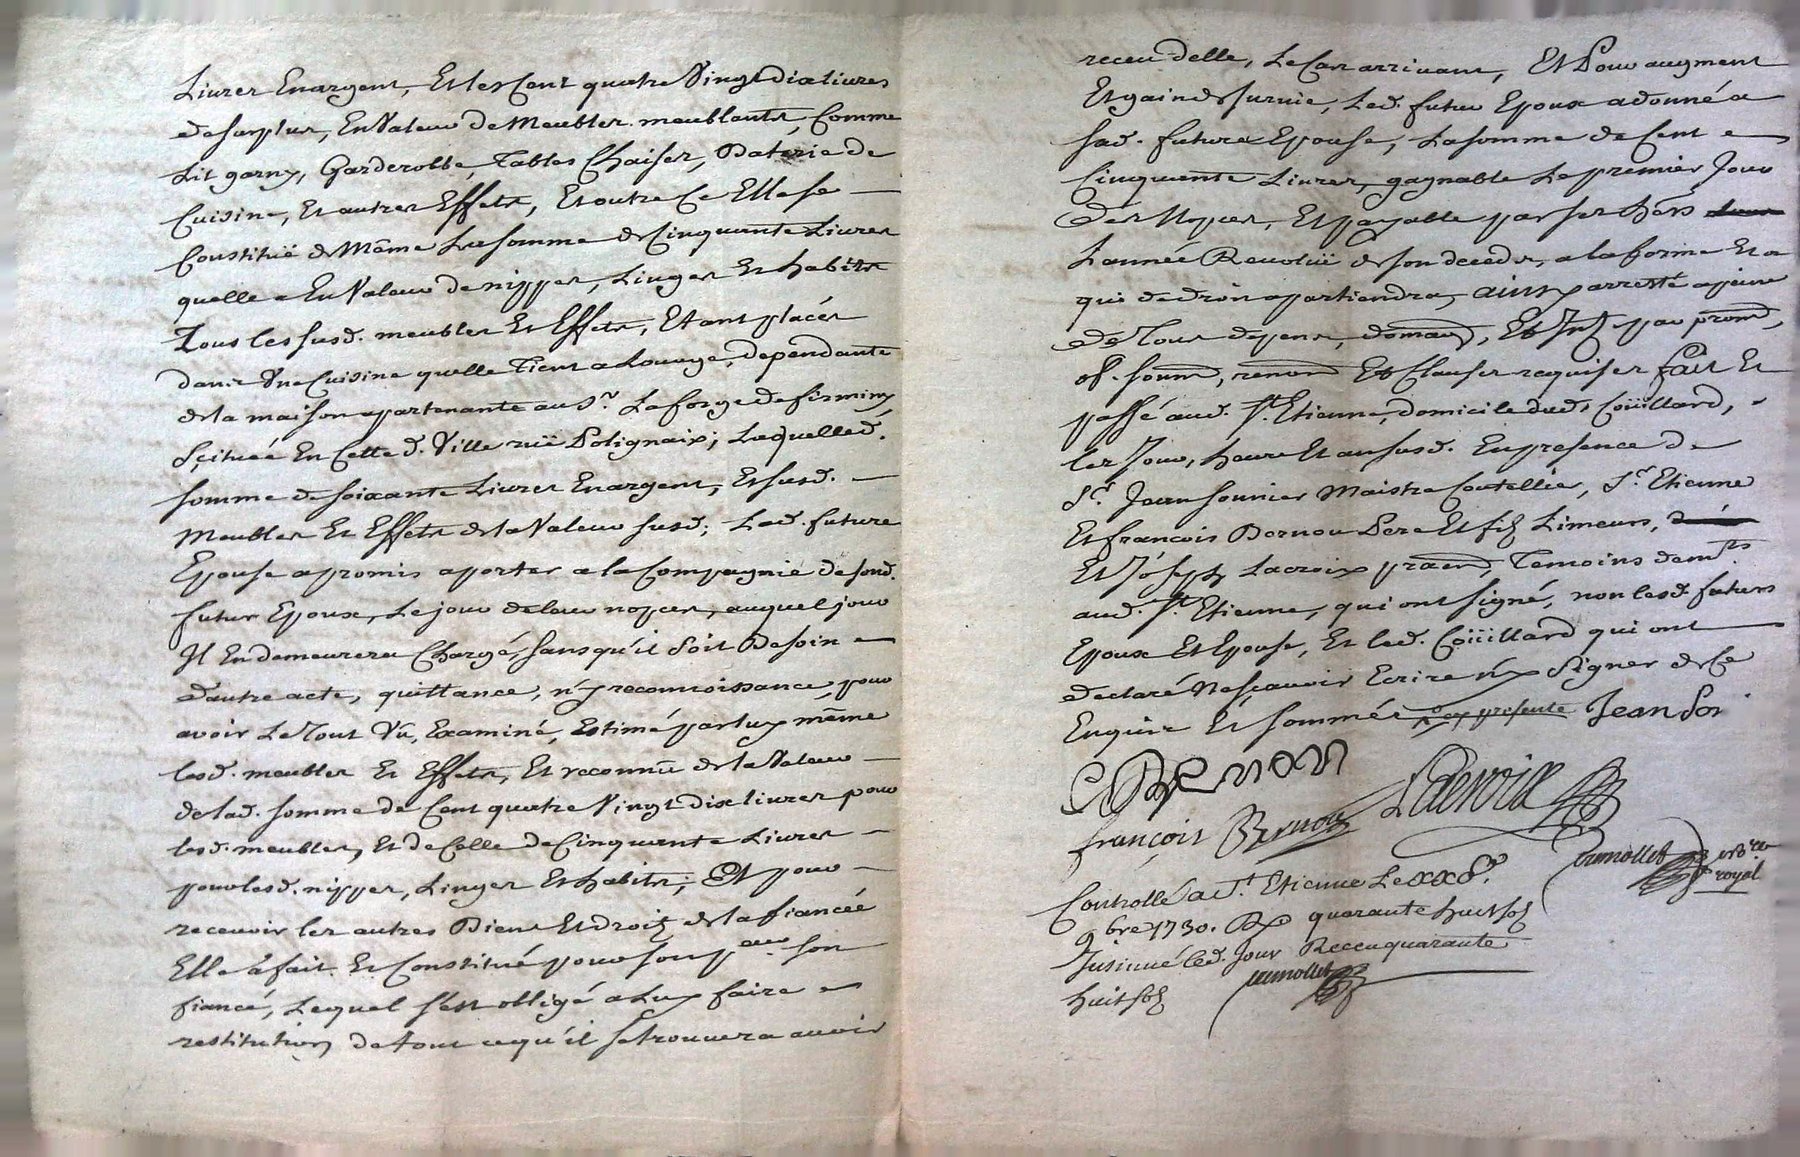 Livres Enargent, Et les Cent quatre Vingt dix livres
de surplus, En Valeur de Meubles meublants, Comme
Lit garny, Garderobbe, Tables Chaises, Baterie de
Cuisine, Et autres Effets, Et outre Ce Elle se
Constitüé de Même La somme de Cinquante Livres
quelle a En Valeur de nippes, Linges Et habits
Tous les susd. meubles Et Effets, Etant placés
dans Une Cuisine quelle Tient a Louage, dependante
de la maison apartenante au Sr. Laforge de firminy
Scituéé En Cette d. Ville ruë Polignaix; Laquelle d.
somme de soixante Livres Enargent, Et susd.
Meubles Et Effets de la Valeur susd; Lad. future
Epouse a promis aporter a la Compagnie de sond.
futur Epoux, Le jour de leur nopces, auquel jour
Il En demeurera Chargé, sans qu'il soit Besoin
d'autre acte, quittance, n'y reconnoissance, pour
avoir Le Tout Vû, Examiné, Estimé par luy même
lesd. meubles Et Effets, Et reconnû de la Valeur
de lad. somme de Cent quatre Vingt dix livres pour
lesd. meubles, Et de Celle de Cinquante Livres
pour lesd. nippes, Linges Et habits; Et pour
recevoir les autres Biens Et droits de la fiancéé
Elle à fait Et Constitué pour son pour son
fiancé, Lequel s'est obligé a Luy faire
restitution de tout ce qu'il se trouvera avoir
receu d'elle, Le Cas arrivant, Et Pour augment
Et gain de survie, Led. futur Epoux a donné a
sad. future Epouse, La somme de Cent
Cinquante Livres, gagnable Le premier Jour
des Nopces, Et payable par ses hérs
L'année Revolüe de son decedz, a la forme Et a
qui de droit apartiendra, ainsy arresté a peine
de Tous depens, domag, Et Int par prom,
ob. soum, renon Et Clauses requises fait Et
passé aud. St. Etienne, domicile dud. Coüillard,
les Jour, heure Et an susd. En presence de
Sr. Jean sonnier Maistre Coutellier, Sr. Etienne
Et françois Bernou Pere Et fils Limeurs,
Et Joseph Lacroix pratn, Temoins demts
aud. St. Etienne, qui ont signé, non lesd. futurs
Epoux Et Epouse, Et led. Coüillard qui ont
declaré Ne sçavoir Ecrire n'y Signer de Ce
Enquis Et sommés Jean Son
E Bernon
françois Bernou Lacroix
Controllé a St. Etienne Le
9bre 1730. quarante huit sols
Insinué led. Jour Receu quarante
huit sols
royal